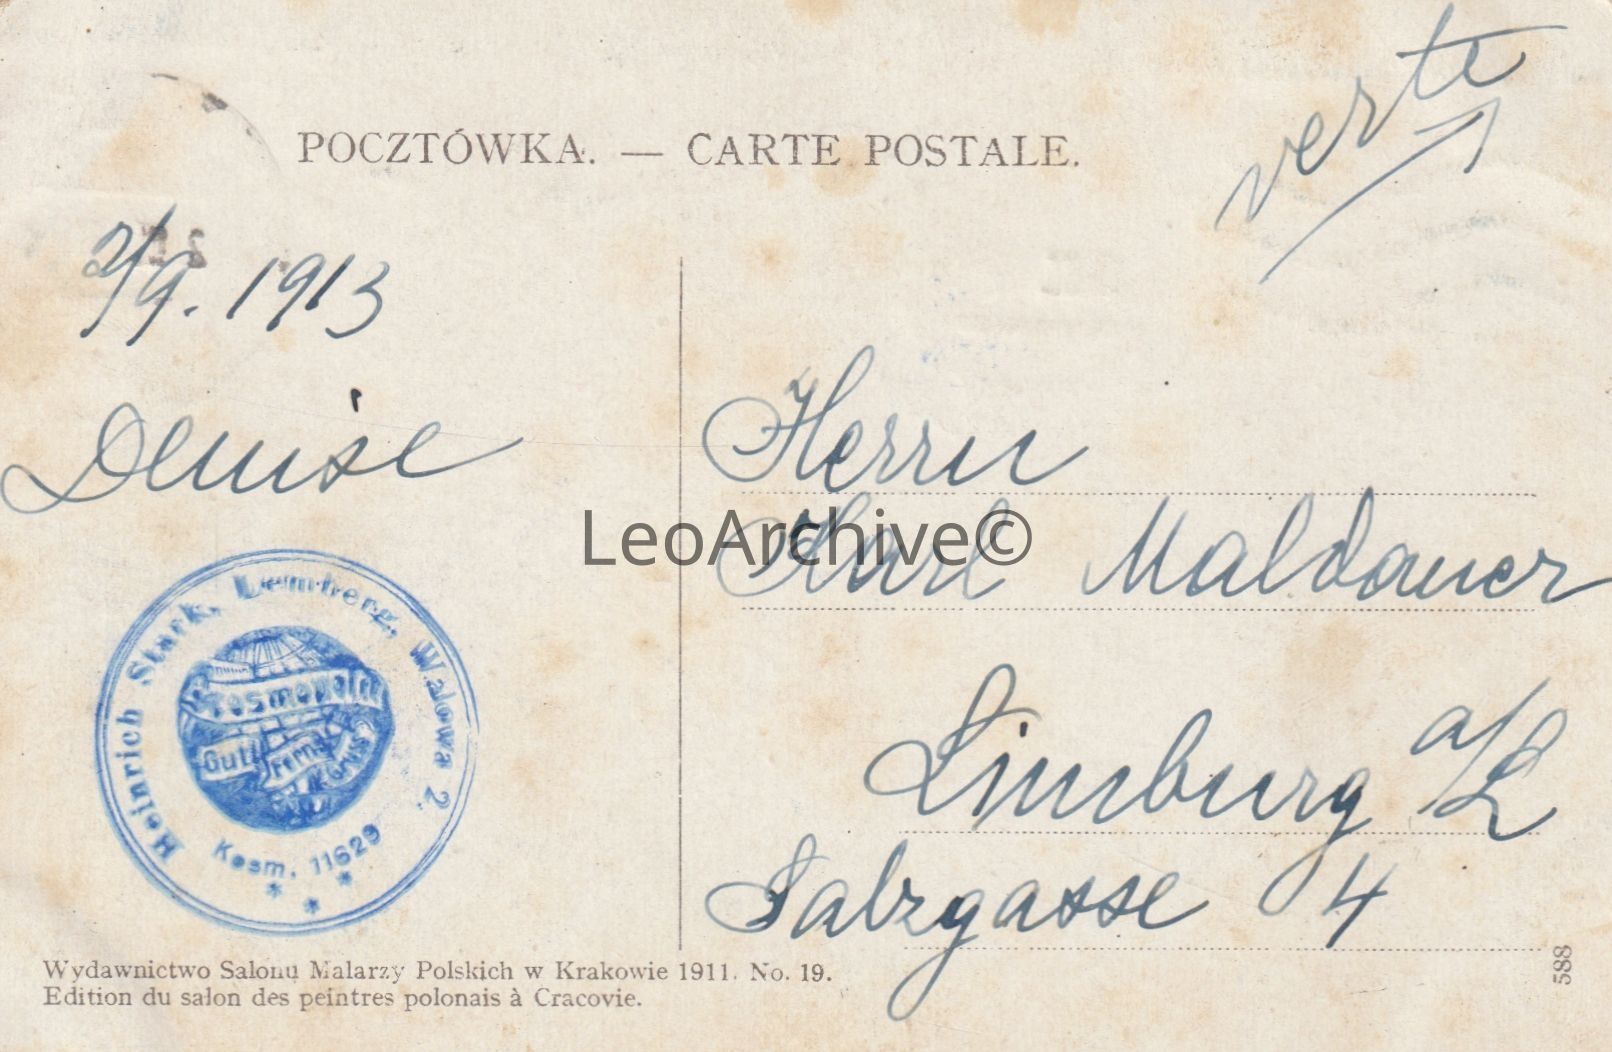 POCZTÓWKA. — CARTE POSTALE.
verte
2/9. 1913
Denise
Herrn
Karl Maldaner
Limburg a/L
Salzgasse 4
LeoArchive©
Heinrich Stark, Lemberg, Walowa 2.
Kosmopolit
Gut Fern Gruss
Kosm. 11629
* * *
Wydawnictwo Salonu Malarzy Polskich w Krakowie 1911. No. 19.
Edition du salon des peintres polonais à Cracovie.
588